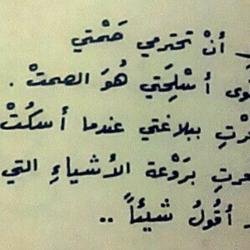 أنْ تحترمي صَمْتي
وَى أسْلِحَتي هُوَ الصمتْ .
رْتِ ببلاغتي عندما أسكُتْ
عرتِ بَروْعة الأشياءِ التي
أقُولُ شيئاً ..